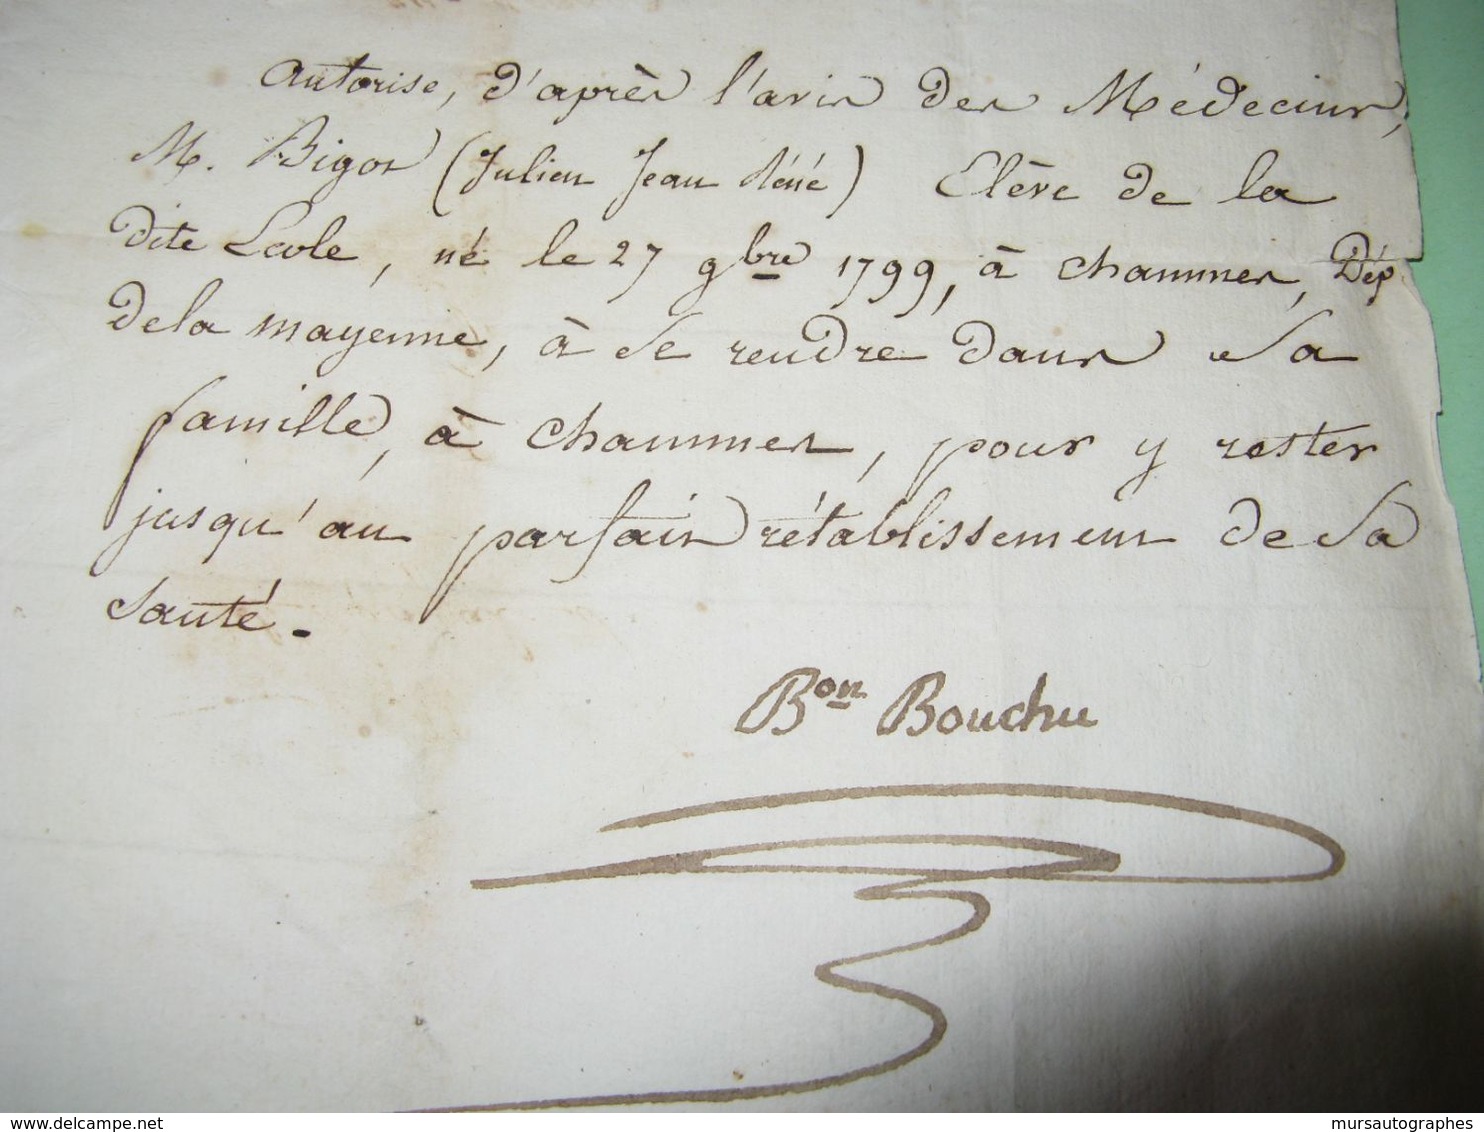 autorise, d'après l'avis des Médecins,
M. Bigot (Julien Jean Réné) Elève de la
dite Ecole, né le 27 9bre 1799, à chammes, Dép
de la mayenne, à se rendre dans sa
famille, à chammes, pour y rester
jusqu'au parfait rétablissement de sa
santé.
Bon Bouchu
www.delcampe.net
mursautographes